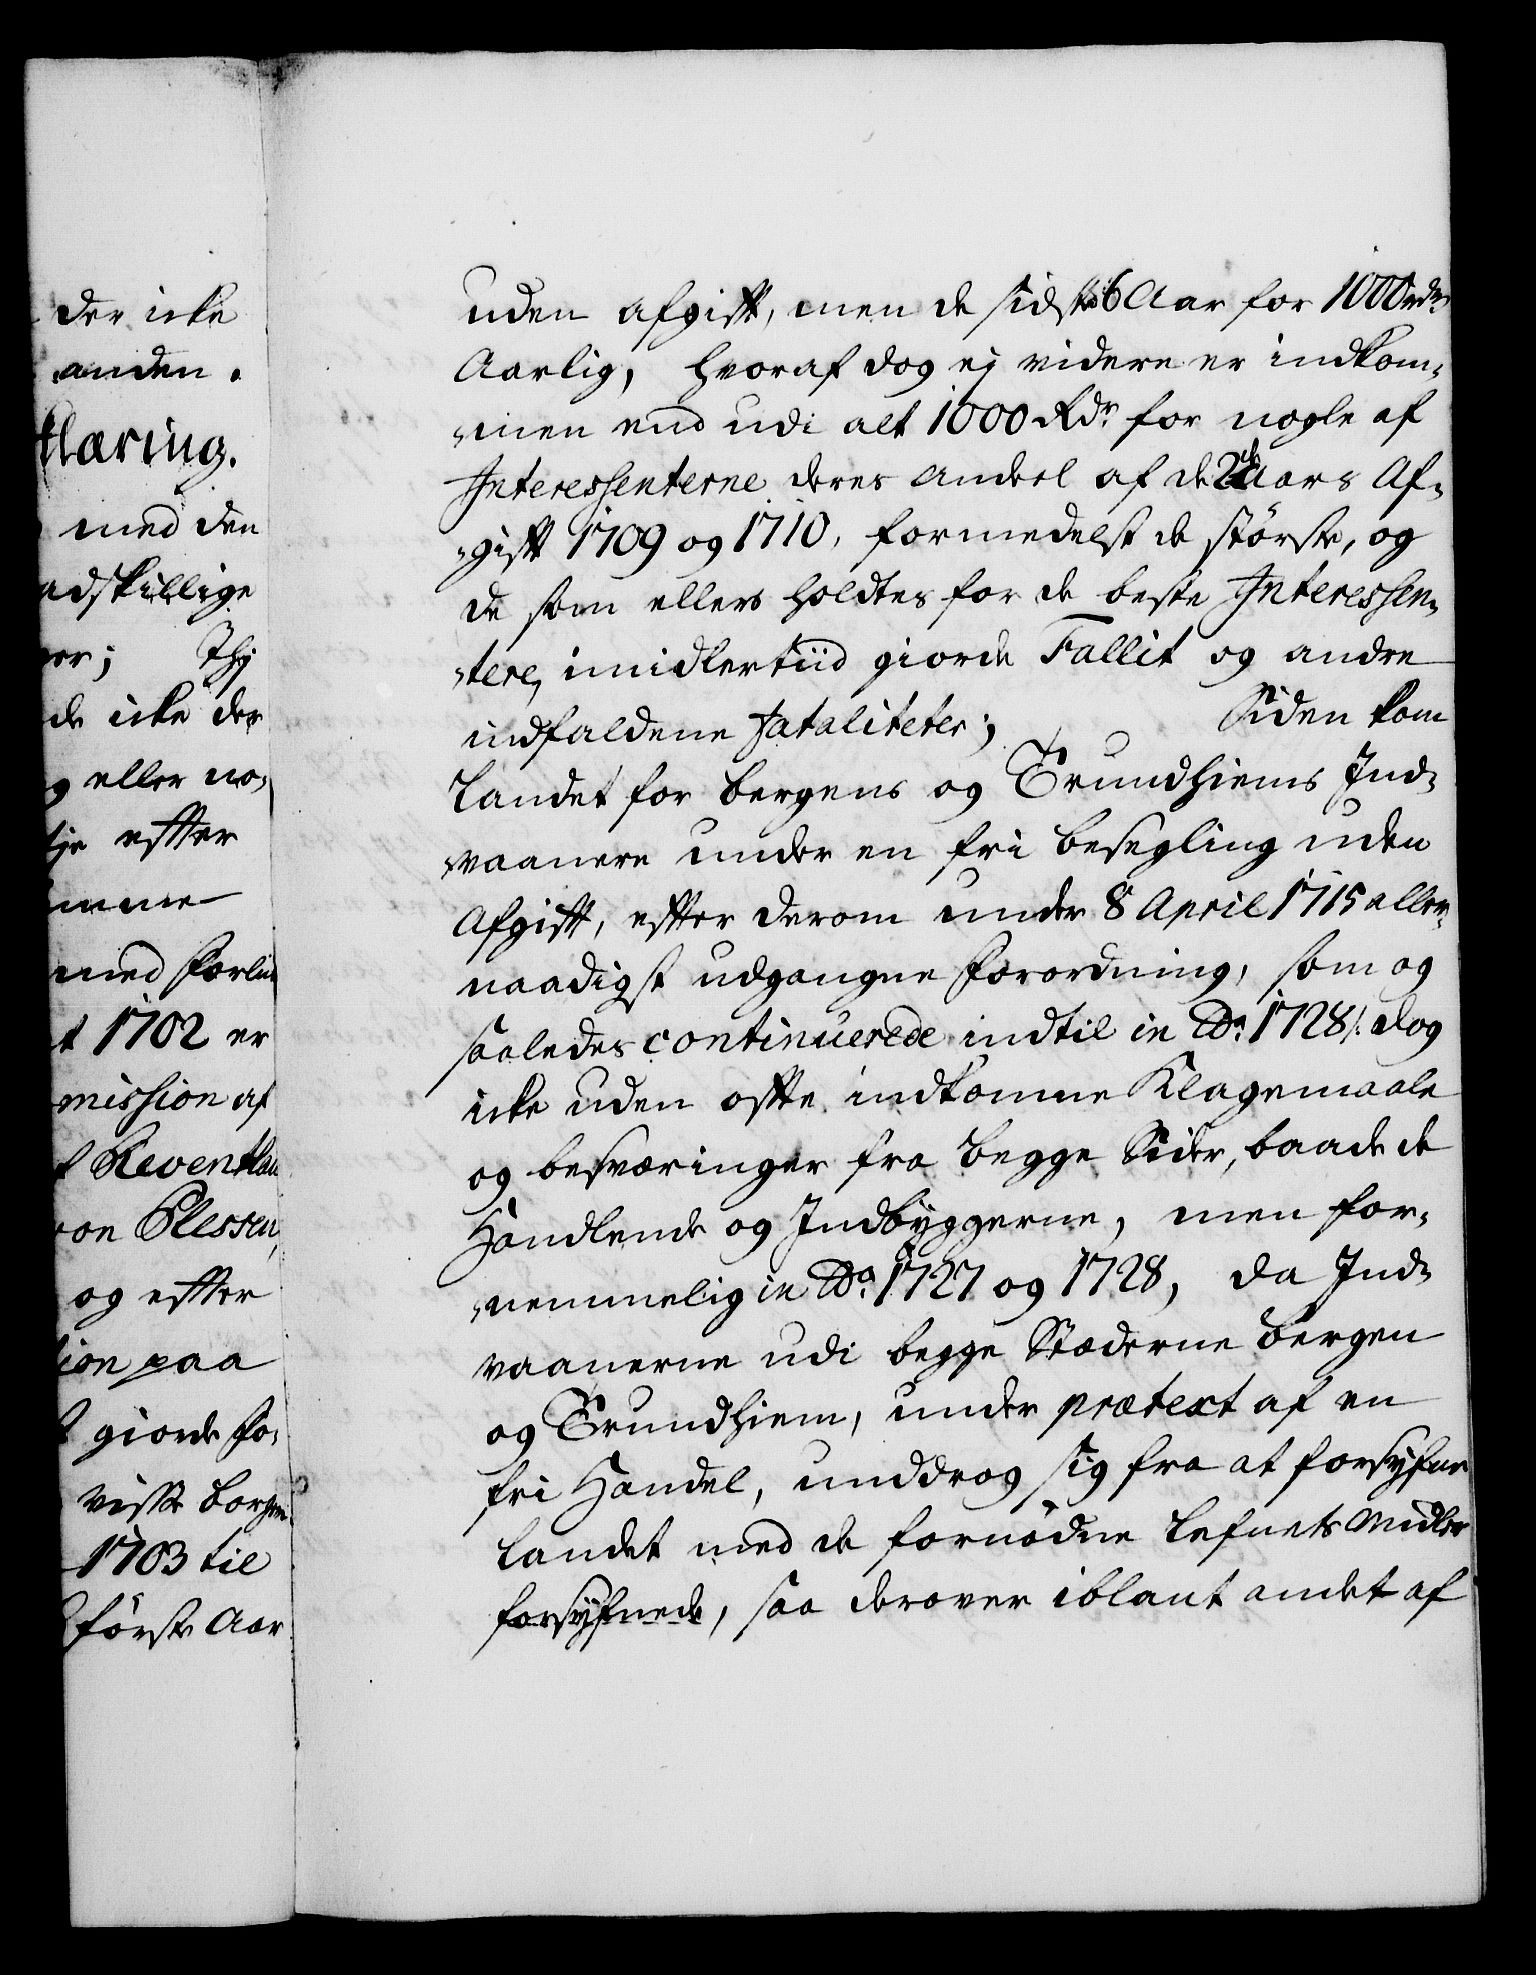 der icke
anden.
klæring.
med den
adskillige
er; Thj
de icke der
g eller no-
je effter
mme
med forlii
t 1702 er
mission af
f Reventlau
on Plessen,
og effter
tion paa
giorde fo-
visse borgere
1703 til
første Aar
uden afgifft, men de sidste 6 Aar for 1000 rdr
Aarlig, hvoraf dog ej videre er indkom-
men end udi alt 1000 Rdr for nogle af
Interessenterne deres Andeel af de 2de Aars Af-
gifft 1709 og 1710, formedelst de største, og
de som ellers holdtes for de beste Interessen-
tere, imidlertiid giorde Fallit og andre
indfaldene fataliteter; Siden kom
Landet for Bergens og Trundhiems Ind-
vaanere under en fri Besegling uden
Afgifft, effter derom under 8 April 1715 aller-
naadigst udgangne Forordning, som og
saaledes continuerede indtil in Ao. 1728/: dog
icke uden offte indkomne Klagemaale
og besværinger fra begge Sider, baade de
Handlende og Indbyggerne, men for-
nemmelig in Ao. 1727 og 1728, da Ind-
vaanerne udi begge Stæderne Bergen
og Trundhiem, under prætext af en
fri Handel, unddrog sig fra at forsyfne
Landet med de fornødne Lefnets Midler
forsyfnede, saa derover iblant andet af